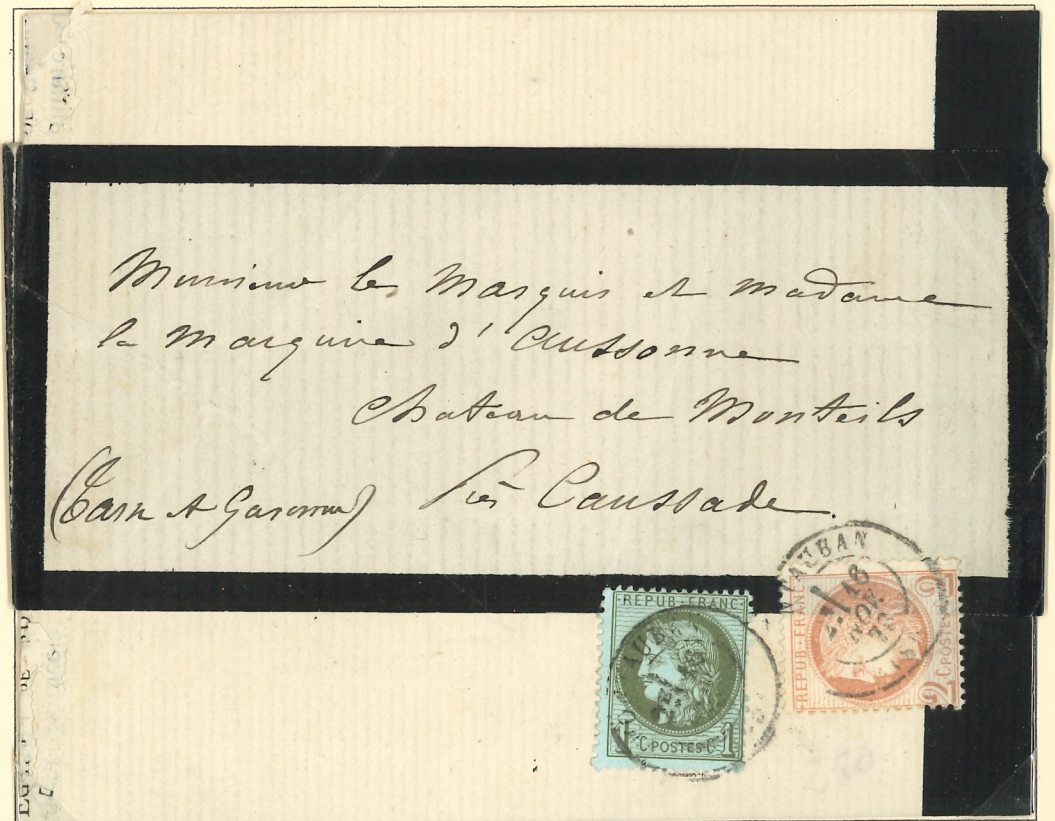 Monsieur le Marquis et Madame
la Marquise d'Aussonne
Chateau de Monteils
près Caussade.
(Tarn et Garonne)
AUBAN
18
NOV.
REPUB · FRANC
1 C · POSTES · C 1
REPUB · FRANC
2 C · POSTES 2